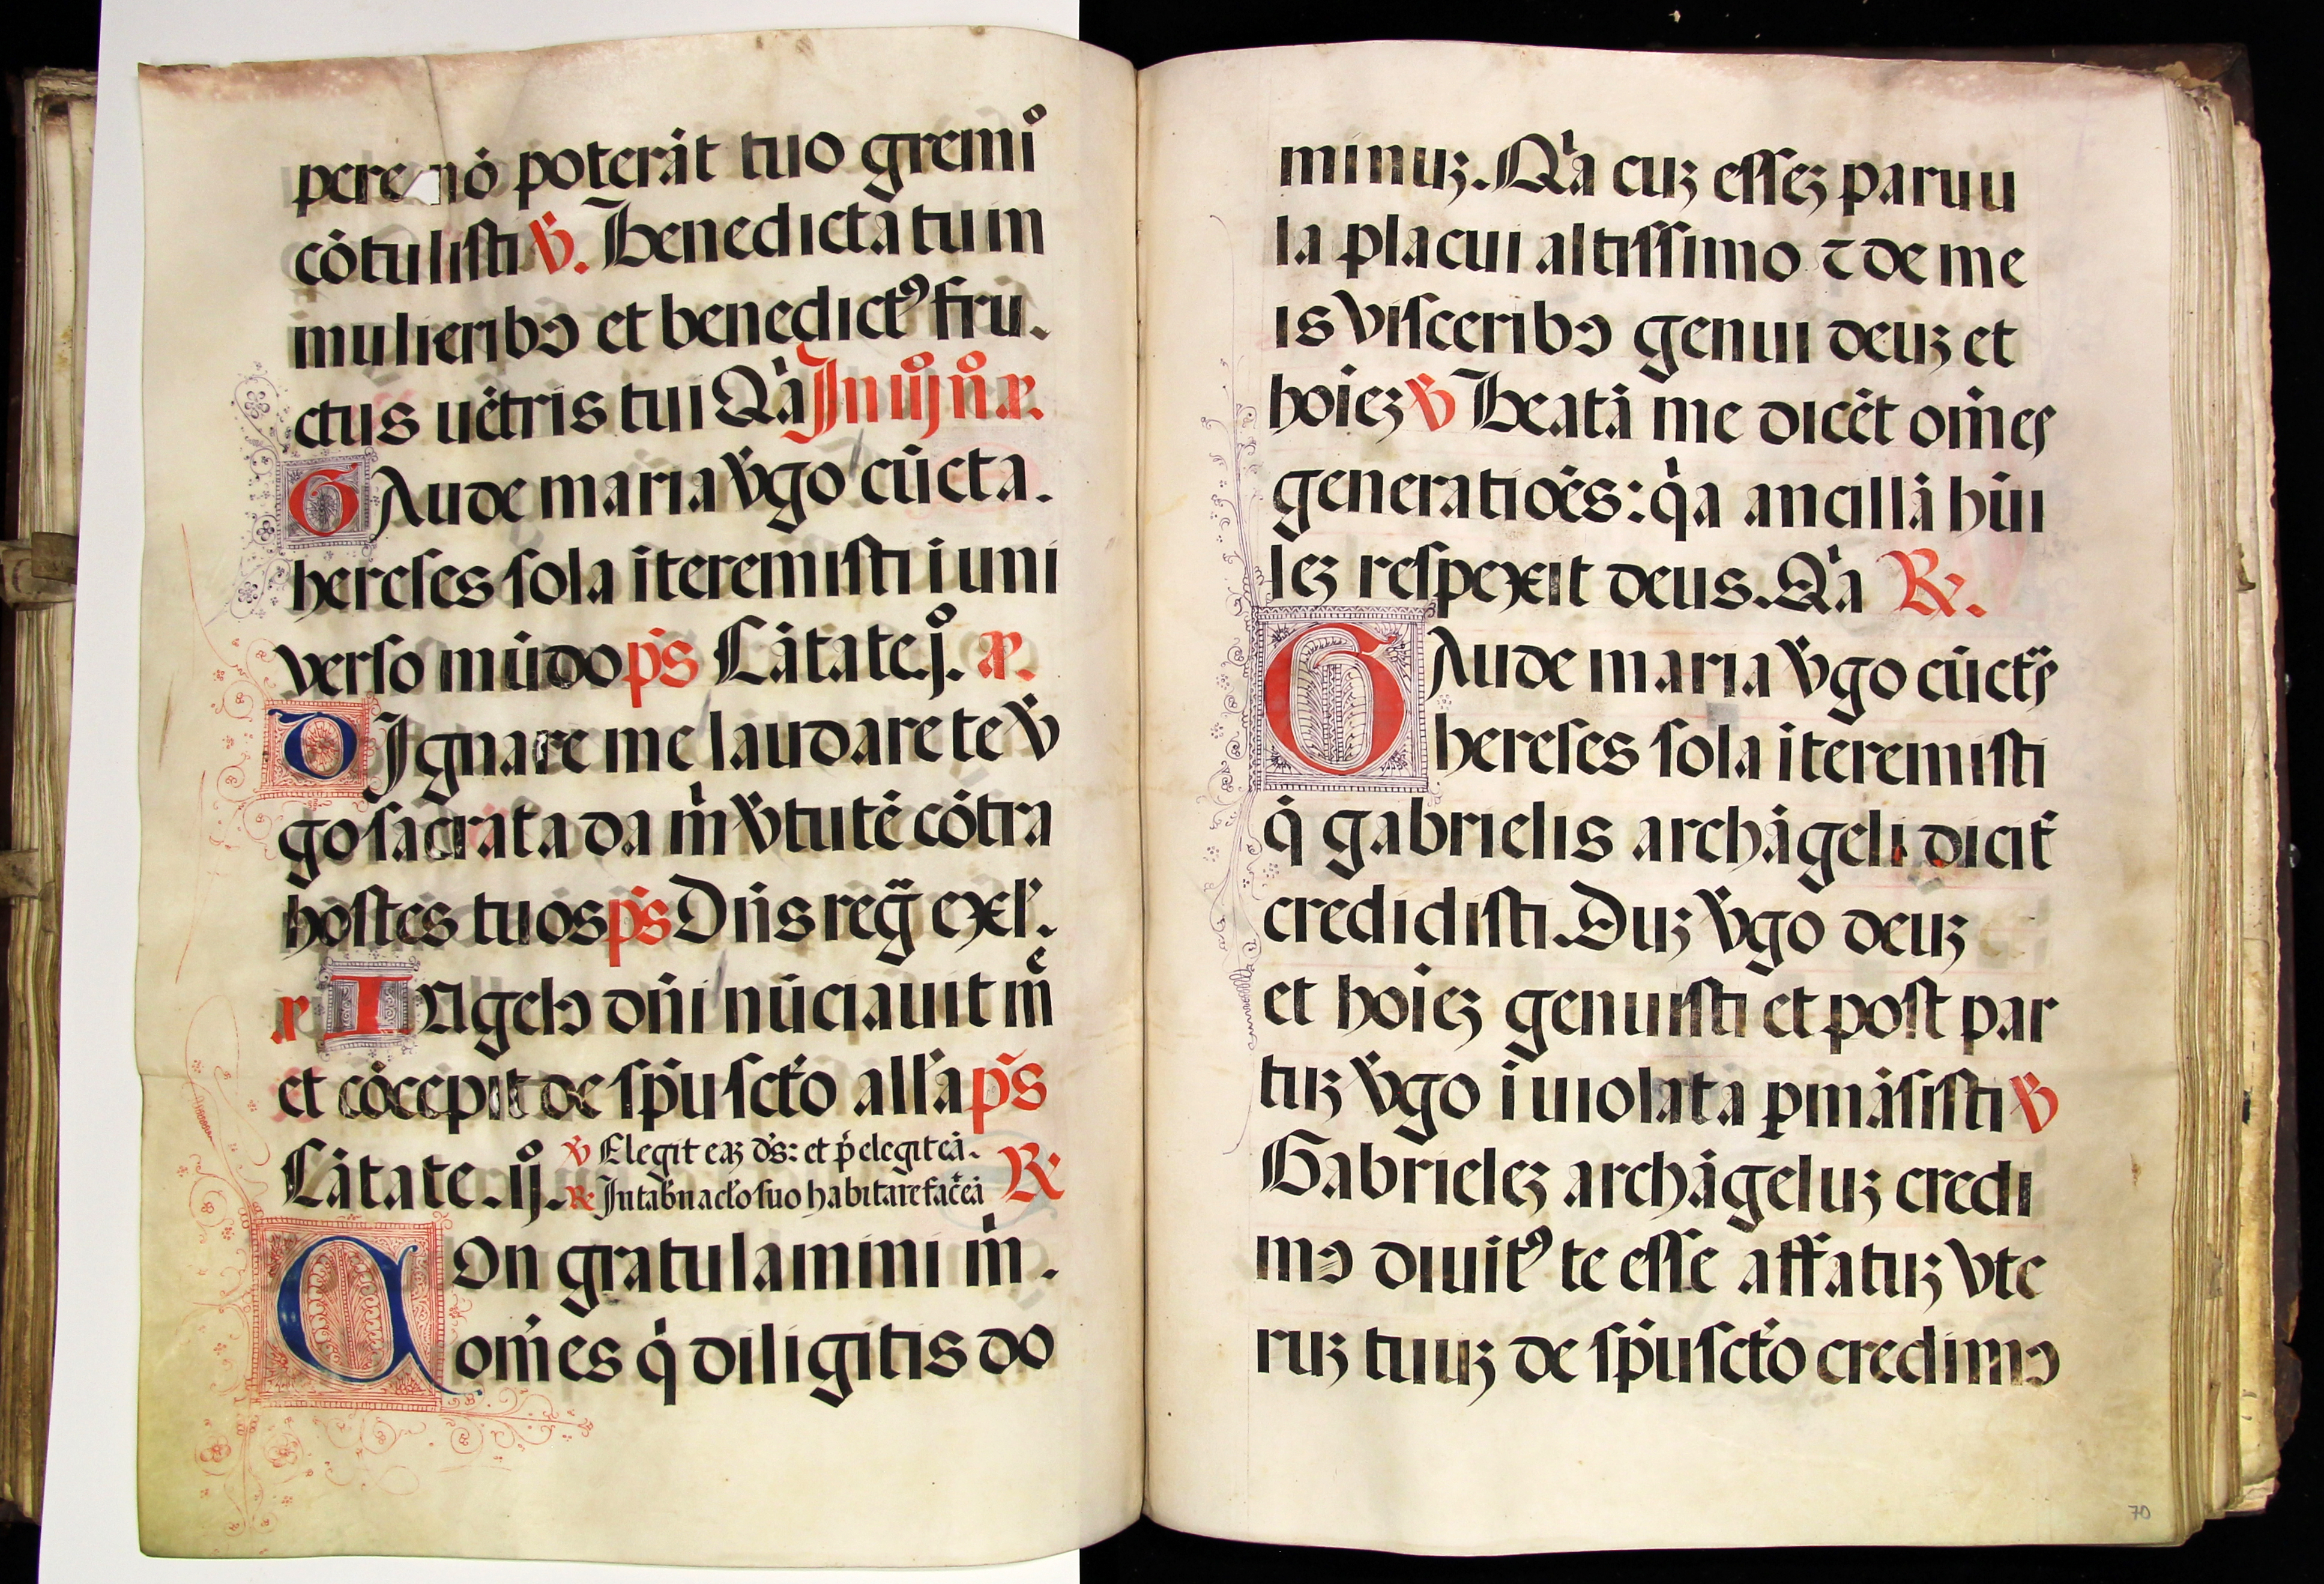 pere nō poterāt tuo gremiͦ
cōtulisti ℣. Benedicta tu in
mulieribꝰ et benedictꝰ fru.
ctus uētris tui Qͥa In iijͦ nͦ. añ.
GAude maria v̄go cūcta.
hereses sola īteremisti ī uni
verso mūdo p̄s Cātate.jͦ. añ.
DIgnare me laudare te v̄
go sacrata da mͥ v̄tutē cōtra
hostes tuos p̄s Dn̄s reg̃ exl̓.
añ ANgelꝰ dn̄i nūciauit mͤ
et cōcepit de sp̄u sctō all̓a p̄s
Cātate.ijͦ. ℣ Elegit eaꝫ d̄s: et p̄elegit eā.
℟ In tab̓nacl̓o suo habitare fac̄ eā ℟
COn gratulamini mͥ.
om̄es qͥ diligitis do
minuꝫ. Qͥa cuꝫ esseꝫ paruu
la placui altissimo ⁊ de me
is visceribꝰ genui deuꝫ et
hoīeꝫ ℣ Beatā me dicēt om̄es
generatiōes: qͥa ancillā hūi
leꝫ respexit deus. Qͥa ℟.
GAude maria v̄go cūctas
hereses sola īteremisti
q̄ gabrielis archāgeli dictis
credidisti. Duꝫ v̄go deuꝫ
et hoīeꝫ genuisti et post par
tuꝫ v̄go īuiolata ꝑmāsisti ℣
Gabrieleꝫ archāgeluꝫ credi
mꝰ diuitꝰ te esse affatuꝫ vte
ruꝫ tuuꝫ de sp̄u sctō credimꝰ
70